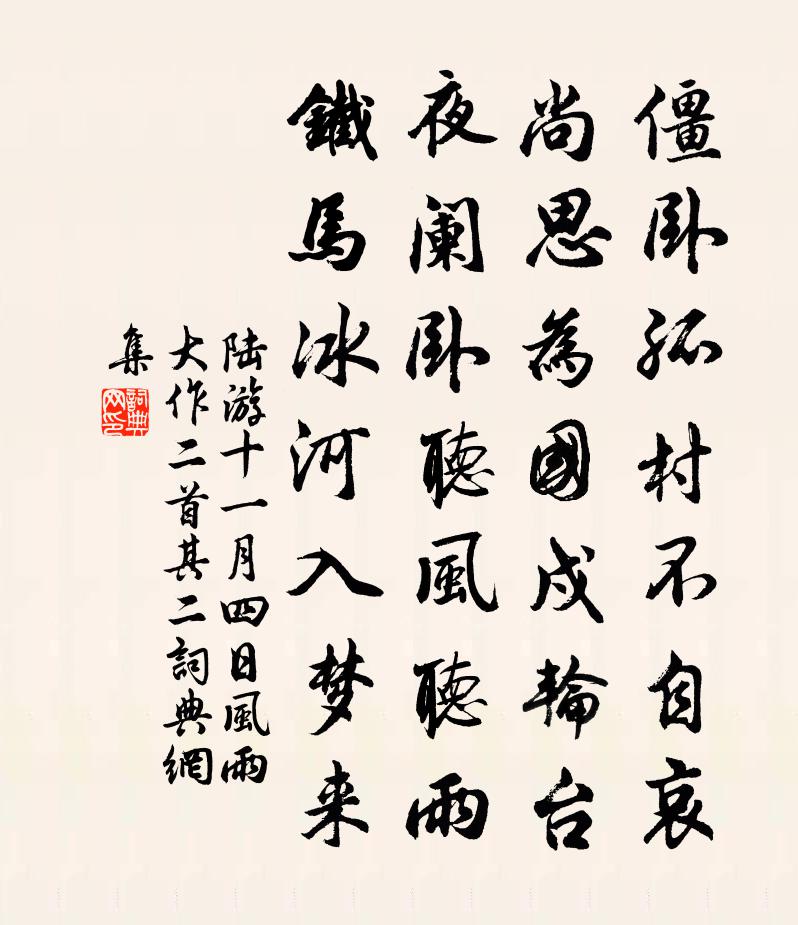 僵卧孤村不自哀
尚思為國戍輪台
夜阑卧聽風聽雨
鐵馬冰河入梦来
陆游十一月四日風雨
大作二首其二詞典網
集
詞典
网印